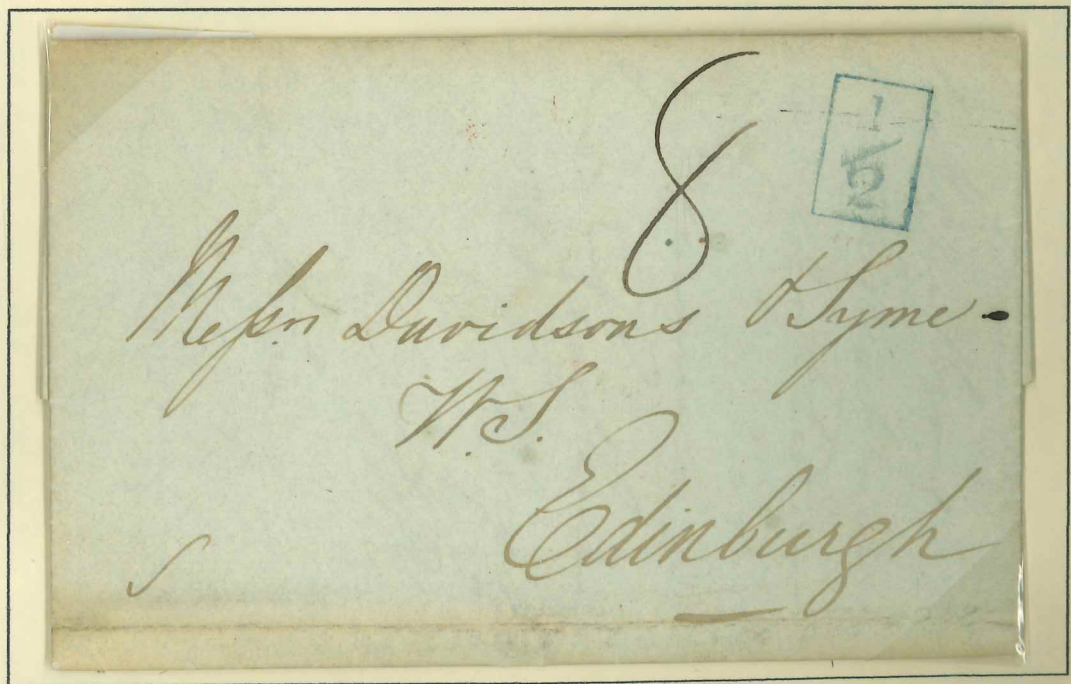 8
1/2
Messrs Davidsons & Syme
W.S.
Edinburgh